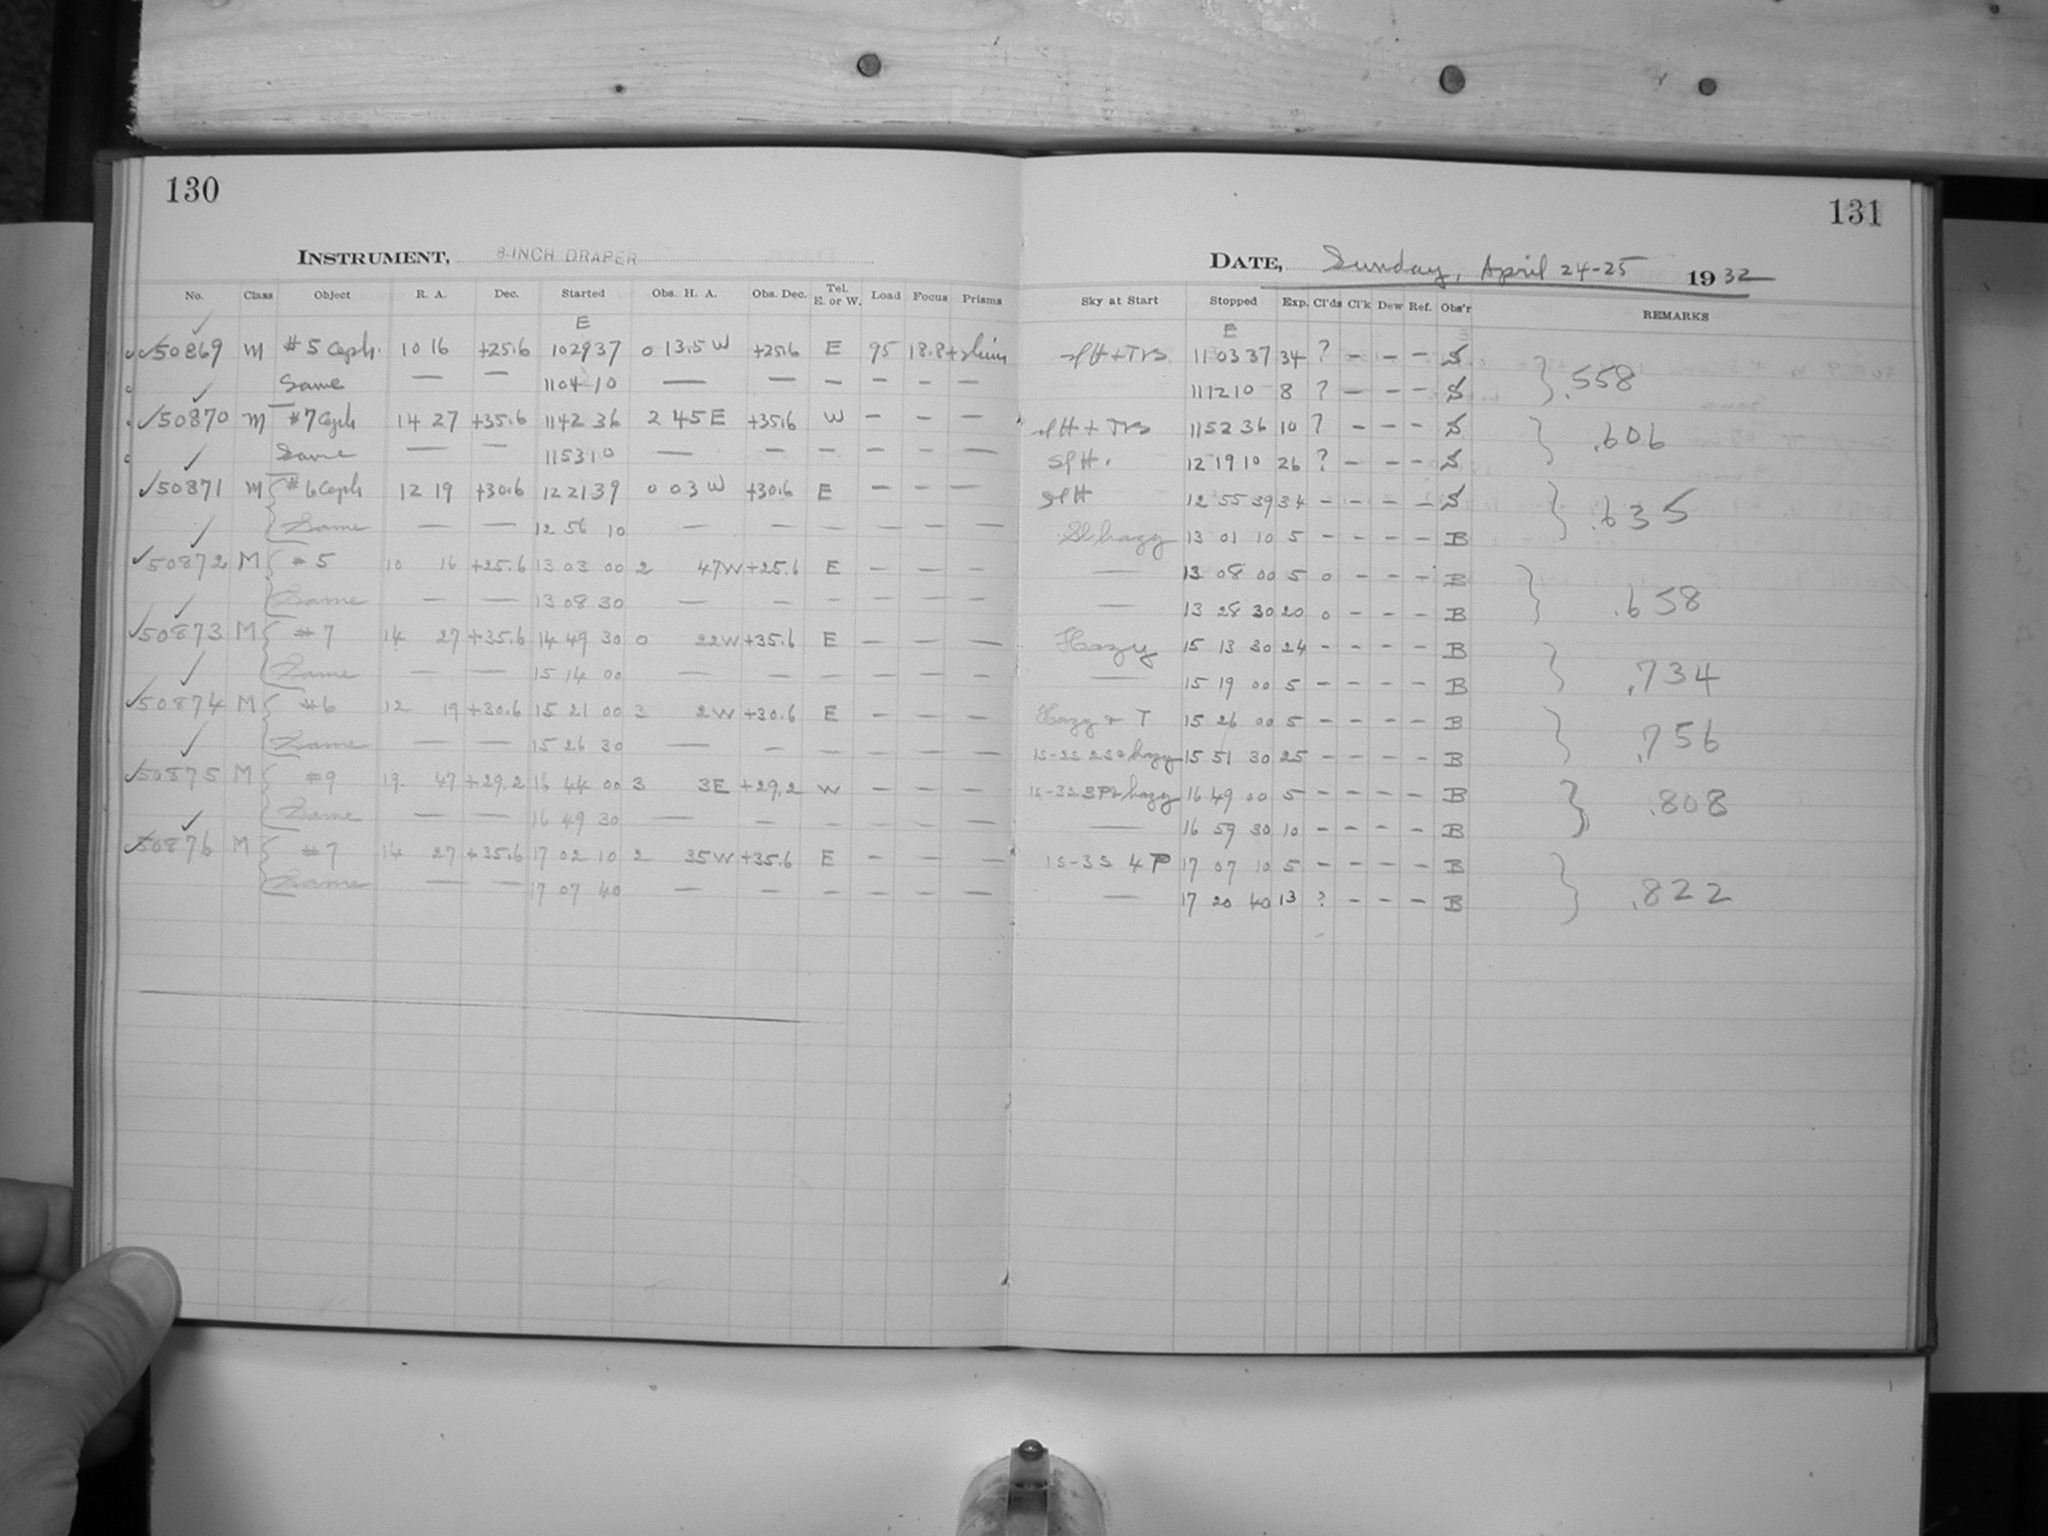 130
131
INSTRUMENT, 8-INCH DRAPER
DATE, Sunday, April 24-25 1932
No. Class Object R. A. Dec. Started Obs. H. A. Obs. Dec. Tel. E. or W. Load Focus Prisms Sky at Start Stopped Exp. Cl'ds Cl'k Dew Ref. Obs'r REMARKS
E E
50869 M #5 Ceph. 10 16 +25.6 10 29 37 0 13.5 W +25.6 E 95 18.8 11 03 37 34 ? - - - S
Same — — 11 04 10 — — - - - - 11 12 10 8 ? - - - S } .558
50870 M #7 Ceph 14 27 +35.6 11 42 36 2 45 E +35.6 W - - - 11 52 36 10 ? - - - S
Same — — 11 53 10 — - - - - - SPH. 12 19 10 26 ? - - - S } .606
50871 M #6 Ceph 12 19 +30.6 12 21 39 0 03 W +30.6 E - - - SPH 12 55 39 34 - - - - S
Same — — 12 56 10 — - - - - - Sl hazy 13 01 10 5 - - - - B } .635
50872 M #5 10 16 +25.6 13 03 00 2 47W +25.6 E - - - — 13 08 00 5 0 - - - B
Same — — 13 08 30 — - - - - - — 13 28 30 20 0 - - - B } .658
50873 M #7 14 27 +35.6 14 49 30 0 22W +35.6 E - - - Hazy 15 13 30 24 - - - - B
Same — — 15 14 00 — - - - - - — 15 19 00 5 - - - - B } .734
50874 M #6 12 19 +30.6 15 21 00 3 2W +30.6 E - - - Hazy + T 15 26 00 5 - - - - B
Same — — 15 26 30 — - - - - - 1S-2S 2S+hazy 15 51 30 25 - - - - B } .756
50875 M #9 19. 47 +29.2 16 44 00 3 3E +29.2 W - - - 1S-3S 3P+hazy 16 49 00 5 - - - - B
Same — — 16 49 30 — - - - - - — 16 59 30 10 - - - - B } .808
50876 M #7 14 27 +35.6 17 02 10 2 35W +35.6 E - - - 1S-3S 4P 17 07 10 5 - - - - B
Same — — 17 07 40 — - - - - - — 17 20 40 13 ? - - - B } .822